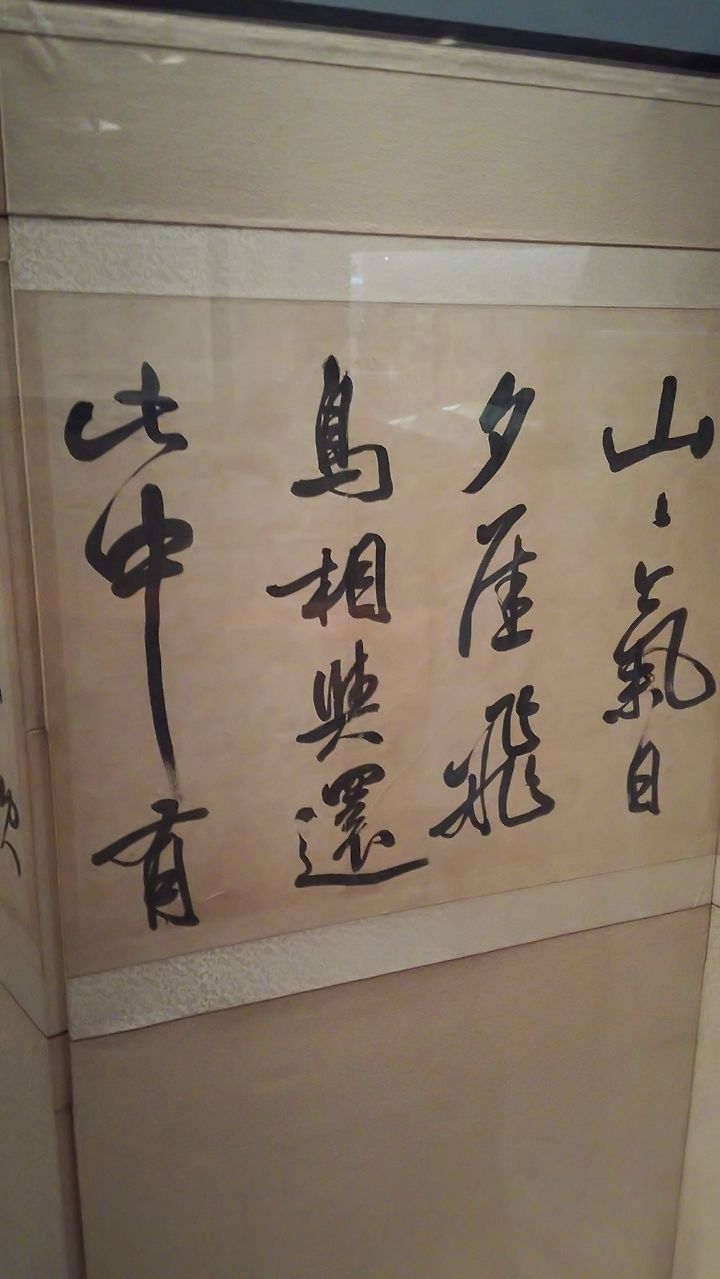 山〻氣日
夕佳飛
鳥相與還
此中有